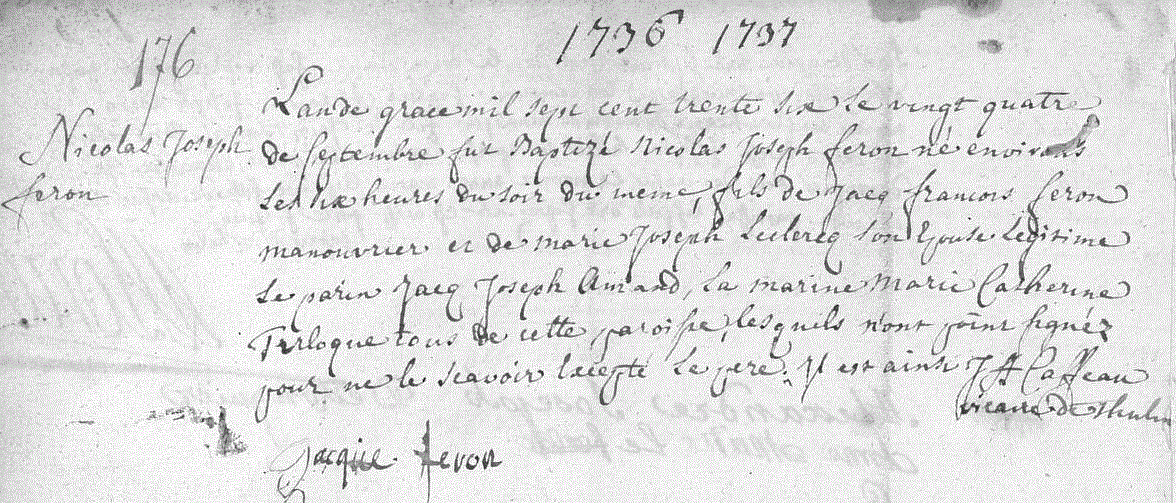 1736 1737
176
Nicolas Joseph
feron
Lande grace mil sept cent trente six Le vingt quatre
de septembre fut Baptizé Nicolas Joseph feron né environs
Les six heures du soir du meme, fils de Jacq francois feron
manouvrier et de marie Joseph Leclercq son Epouse Legitime
Le parin Jacq Joseph Amand, La marine Marie Catherine
tous de cette paroisse, lesquels n'ont point signéz
pour ne le scavoir excepté Le pere. Il est ainsi
vicaire de thulin
Jacque feron